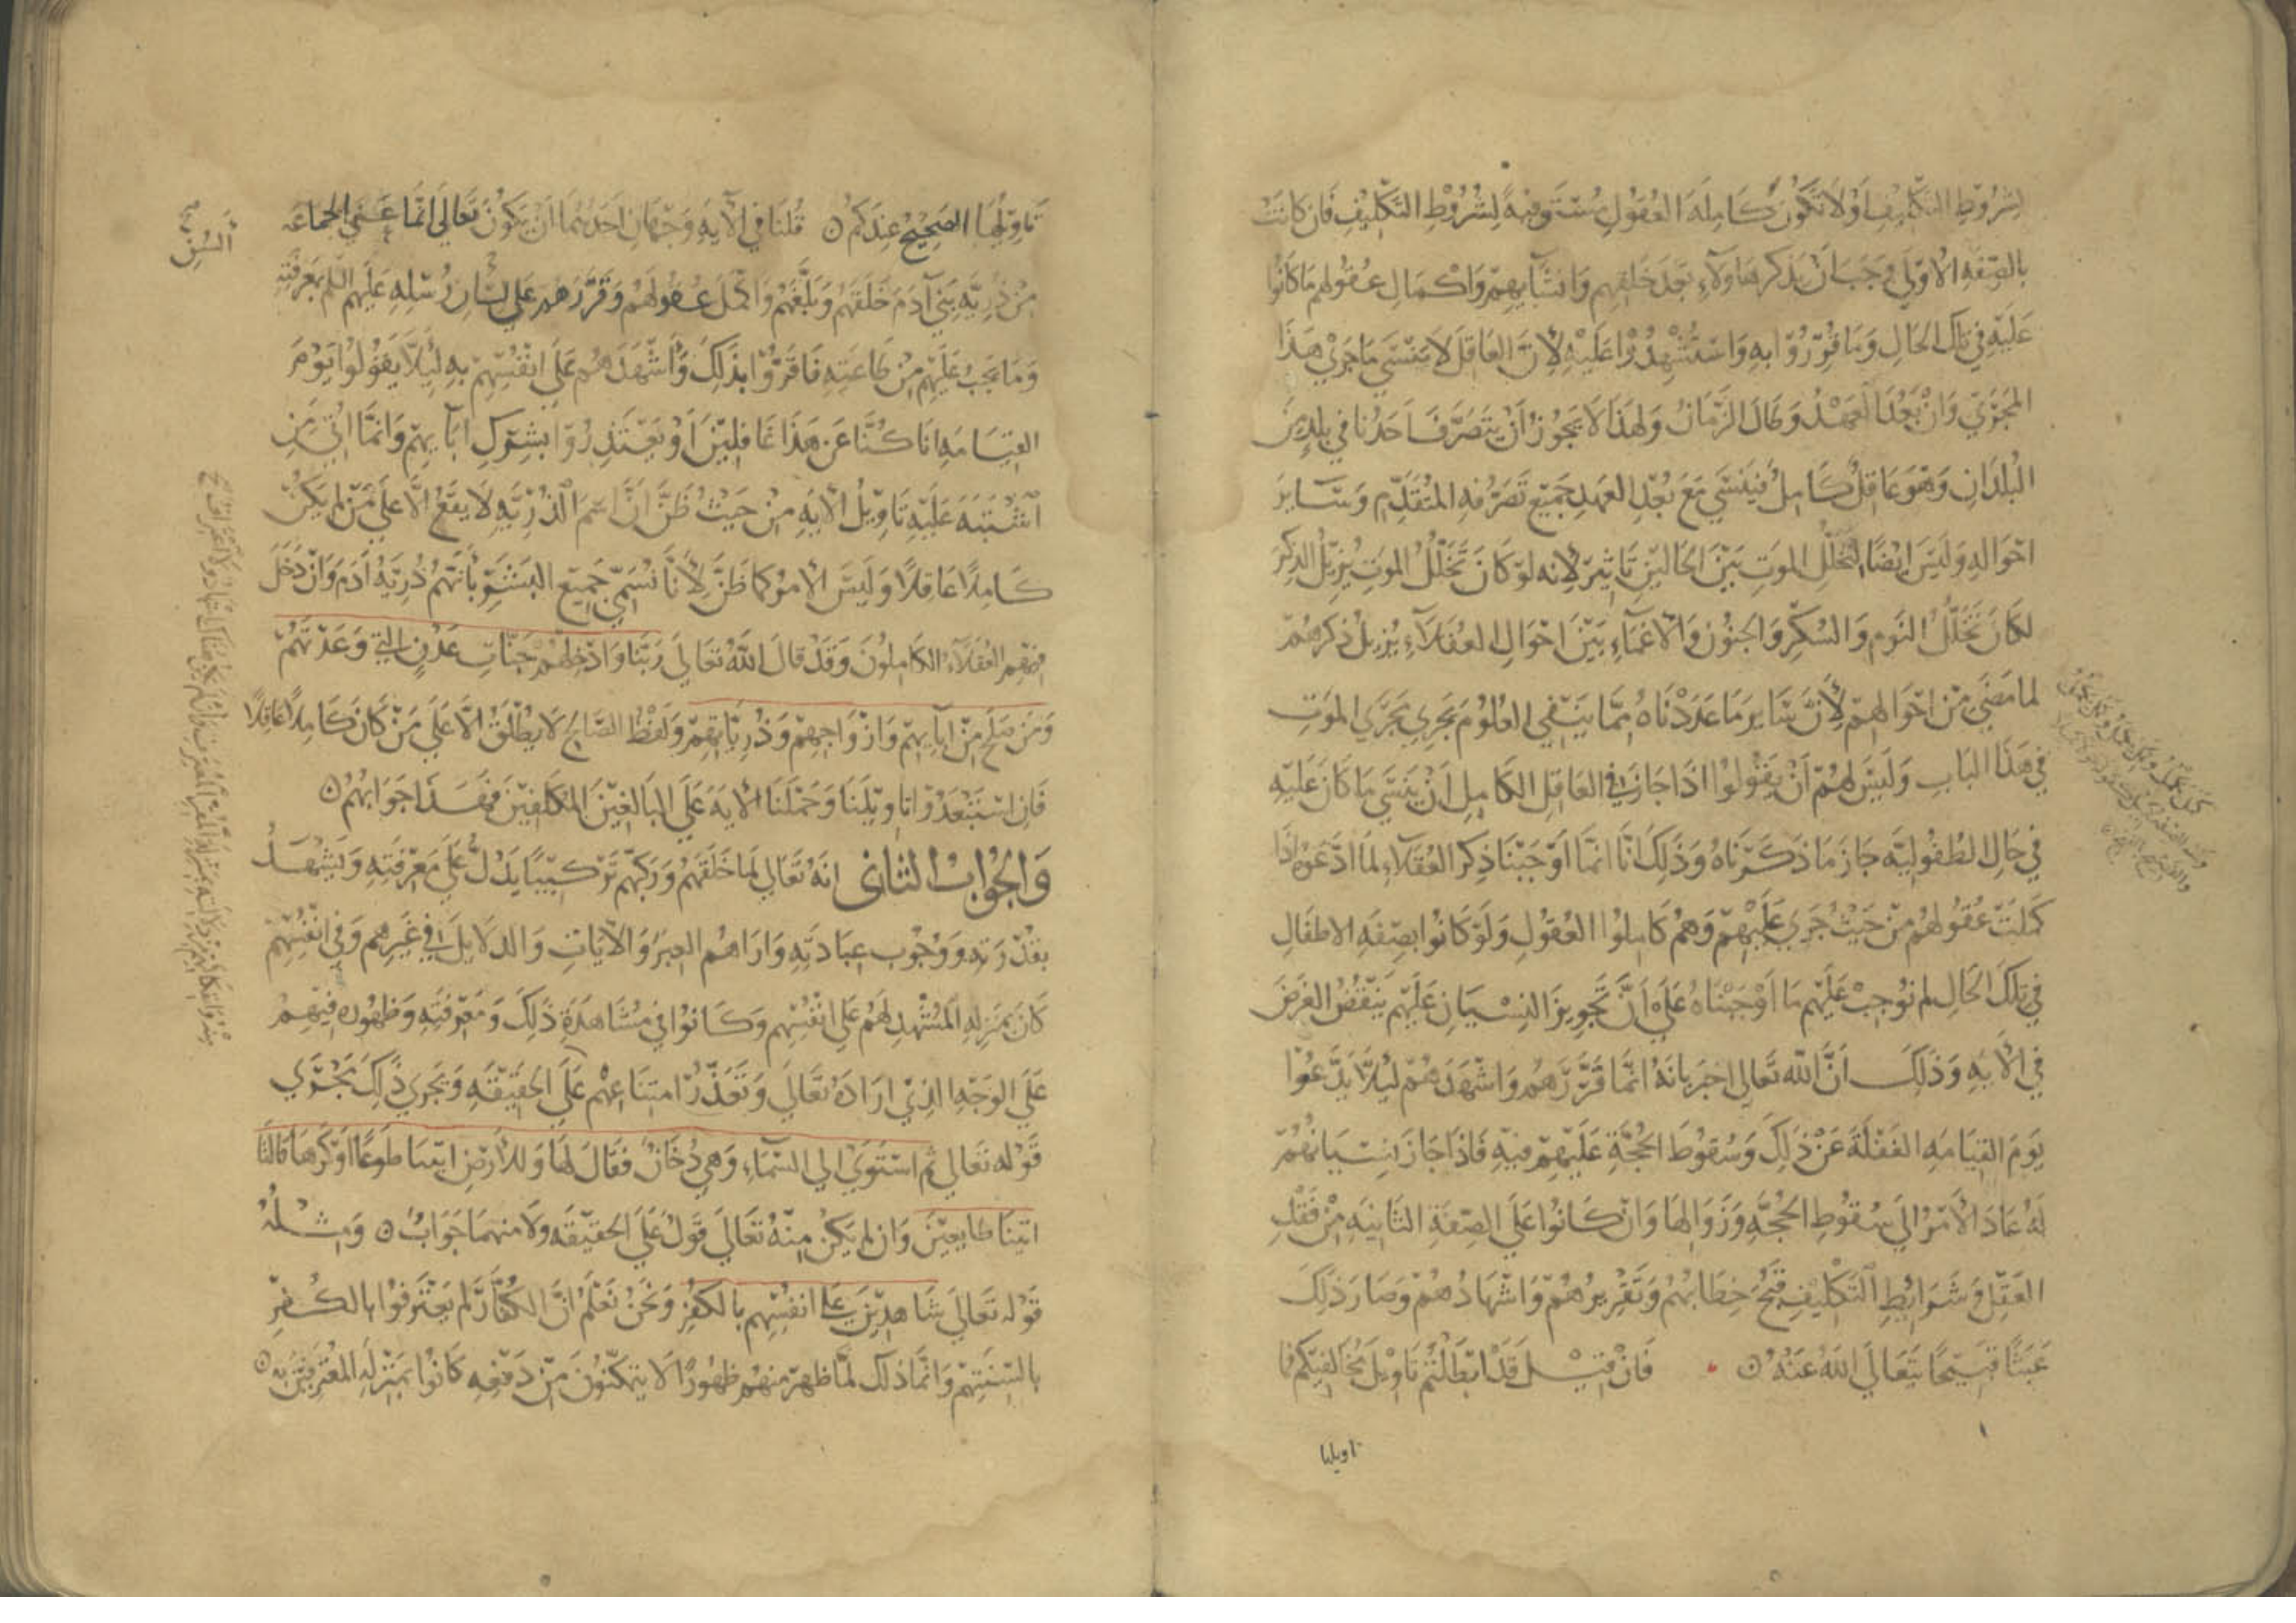 لشروط التكليف أو لا تكون كاملة العقول مستوفية لشروط التكليف فان كانت
بالصفة الاولى وجب ان يذكر هاولآء بعد خلقهم وانشآيهم واكمال عقولهم ما كانوا
عليه في تلك الحال وما قرروا به واستشهدوا عليه لأن العاقل لا ينسى ما جرى هذا
المجرى وان بعد العهد وطال الزمان ولهذا لا يجوز أن يتصرف احدنا في بلد من
البلدان وهو عاقل كامل فينسى مع بعد العهد جميع تصرفه المتقدم وساير
احواله وليس ايضا لتخلل الموت بين الحالين تاثير لانه لو كان تخلل الموت يزيل الذكر
لكان تخلل النوم والسكر والجنون والاغماء بين احوال العقلاء يزيل ذكرهم
لما مضى من احوالهم لأن ساير ما عددناه مما ينفي العلوم يجري مجرى الموت
في هذا الباب وليس لهم أن يقولوا اذا جاز في العاقل الكامل ان ينسى ما كان عليه
في حال الطفولية جاز ما ذكرناه وذلك انا انما اوجبنا ذكر العقلاء لما ادعوه اذا
كملت عقولهم من حيث جرى عليهم وهم كاملوا العقول ولو كانوا بصفة الاطفال
في تلك الحال لم نوجب عليهم ما اوجبناه على أن تجويز النسيان عليهم ينقض الغرض
في الآية وذلك أن الله تعالى اخبر بانه انما قررهم واشهدهم ليلا يدعوا
يوم القيامه الغفلة عن ذلك وسقوط الحجة عليهم فيه فاذا جاز نسيانهم
له عاد الأمر الى سقوط الحجه وزوالها وان كانوا على الصفة الثانيه من فقد
العقل وشرايط التكليف قبح خطابهم وتقريرهم واشهادهم وصار ذلك
عبثا قبيحا يتعالى الله عنه ن فان قيل قد ابطلتم تاويل مخالفيكم فما
تاويلها
تاويلها الصحيح عندكم ن قلنا في الآية وجهان احدهما ان يكون تعالى انما عنى الجماعه
من ذرية بني آدم خلقهم وبلغهم واكمل عقولهم وقررهم على لسان رسله عليهم السلم بمعرفته
السن
وما يجب عليهم من طاعته فاقروا بذلك وأشهدهم على انفسهم به ليلا يقولوا يوم
القيامه انا كنا عن هذا غافلين أو يعتذروا بشرك ابآيهم وانما اتى من
اشتبه عليه تاويل الآيه من حيث ظن ان اسم الذريه لا يقع الا على من لم يكن
كاملا عاقلا وليس الأمر كما ظن لأنا نسمي جميع البشر بأنهم ذرية آدم وان دخل
فيهم العقلاء الكاملون وقد قال الله تعالى ربنا وادخلهم جنات عدن التي وعدتهم
ومن صلح من ابآيهم وازواجهم وذرياتهم ولفظ الصالح لا يطلق الا على من كان كاملا عاقلا
فان استبعدوا تاويلنا وحملنا الآية على البالغين المكلفين فهذا جوابهم ن
والجواب الثاني انه تعالى لما خلقهم وركبهم تركيبا يدل على معرفته ويشهد
بقدرته ووجوب عبادته واراهم العبر والآيات والدلايل في غيرهم وفي انفسهم
كان بمنزلة المشهد لهم على انفسهم وكانوا في مشاهدة ذلك ومعرفته وظهوره فيهم
على الوجه الذي اراده تعالى وتعذر امتناعهم على الحقيقه ويجري ذلك مجرى
قوله تعالى ثم استوى الى السماء وهي دخان فقال لها وللأرض ايتيا طوعا او كرها قالتا
اتينا طايعين وان لم يكن منه تعالى قول على الحقيقه ولا منهما جواب ن ومثله
قوله تعالى شاهدين على انفسهم بالكفر ونحن نعلم ان الكفار لم يعترفوا بالكفر
بالسنتهم وانما ذلك لما ظهر منهم ظهورا لا يتمكنون من دفعه كانوا بمنزلة المعترفين به ن